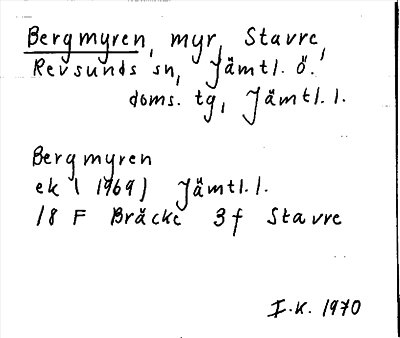 Bergmyren, myr, Stavre,
Revsunds sn, Jämtl. ö.
doms. tg, Jämtl. l.
Bergmyren
ek (1969) Jämtl. l.
18 F Bräcke 3 f Stavre
I.K. 1970